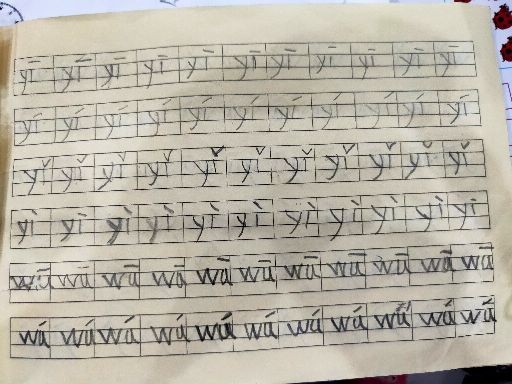 yī yī yī yī yī yī yī yī yī yī yī
yí yí yí yí yí yí yí yí yí yí yí
yǐ yǐ yǐ yǐ yǐ yǐ yǐ yǐ yǐ yǐ yǐ
yì yì yì yì yì yì yì yì yì yì yì
wū wū wū wū wū wū wū wū wū wū wū
wú wú wú wú wú wú wú wú wú wú wú